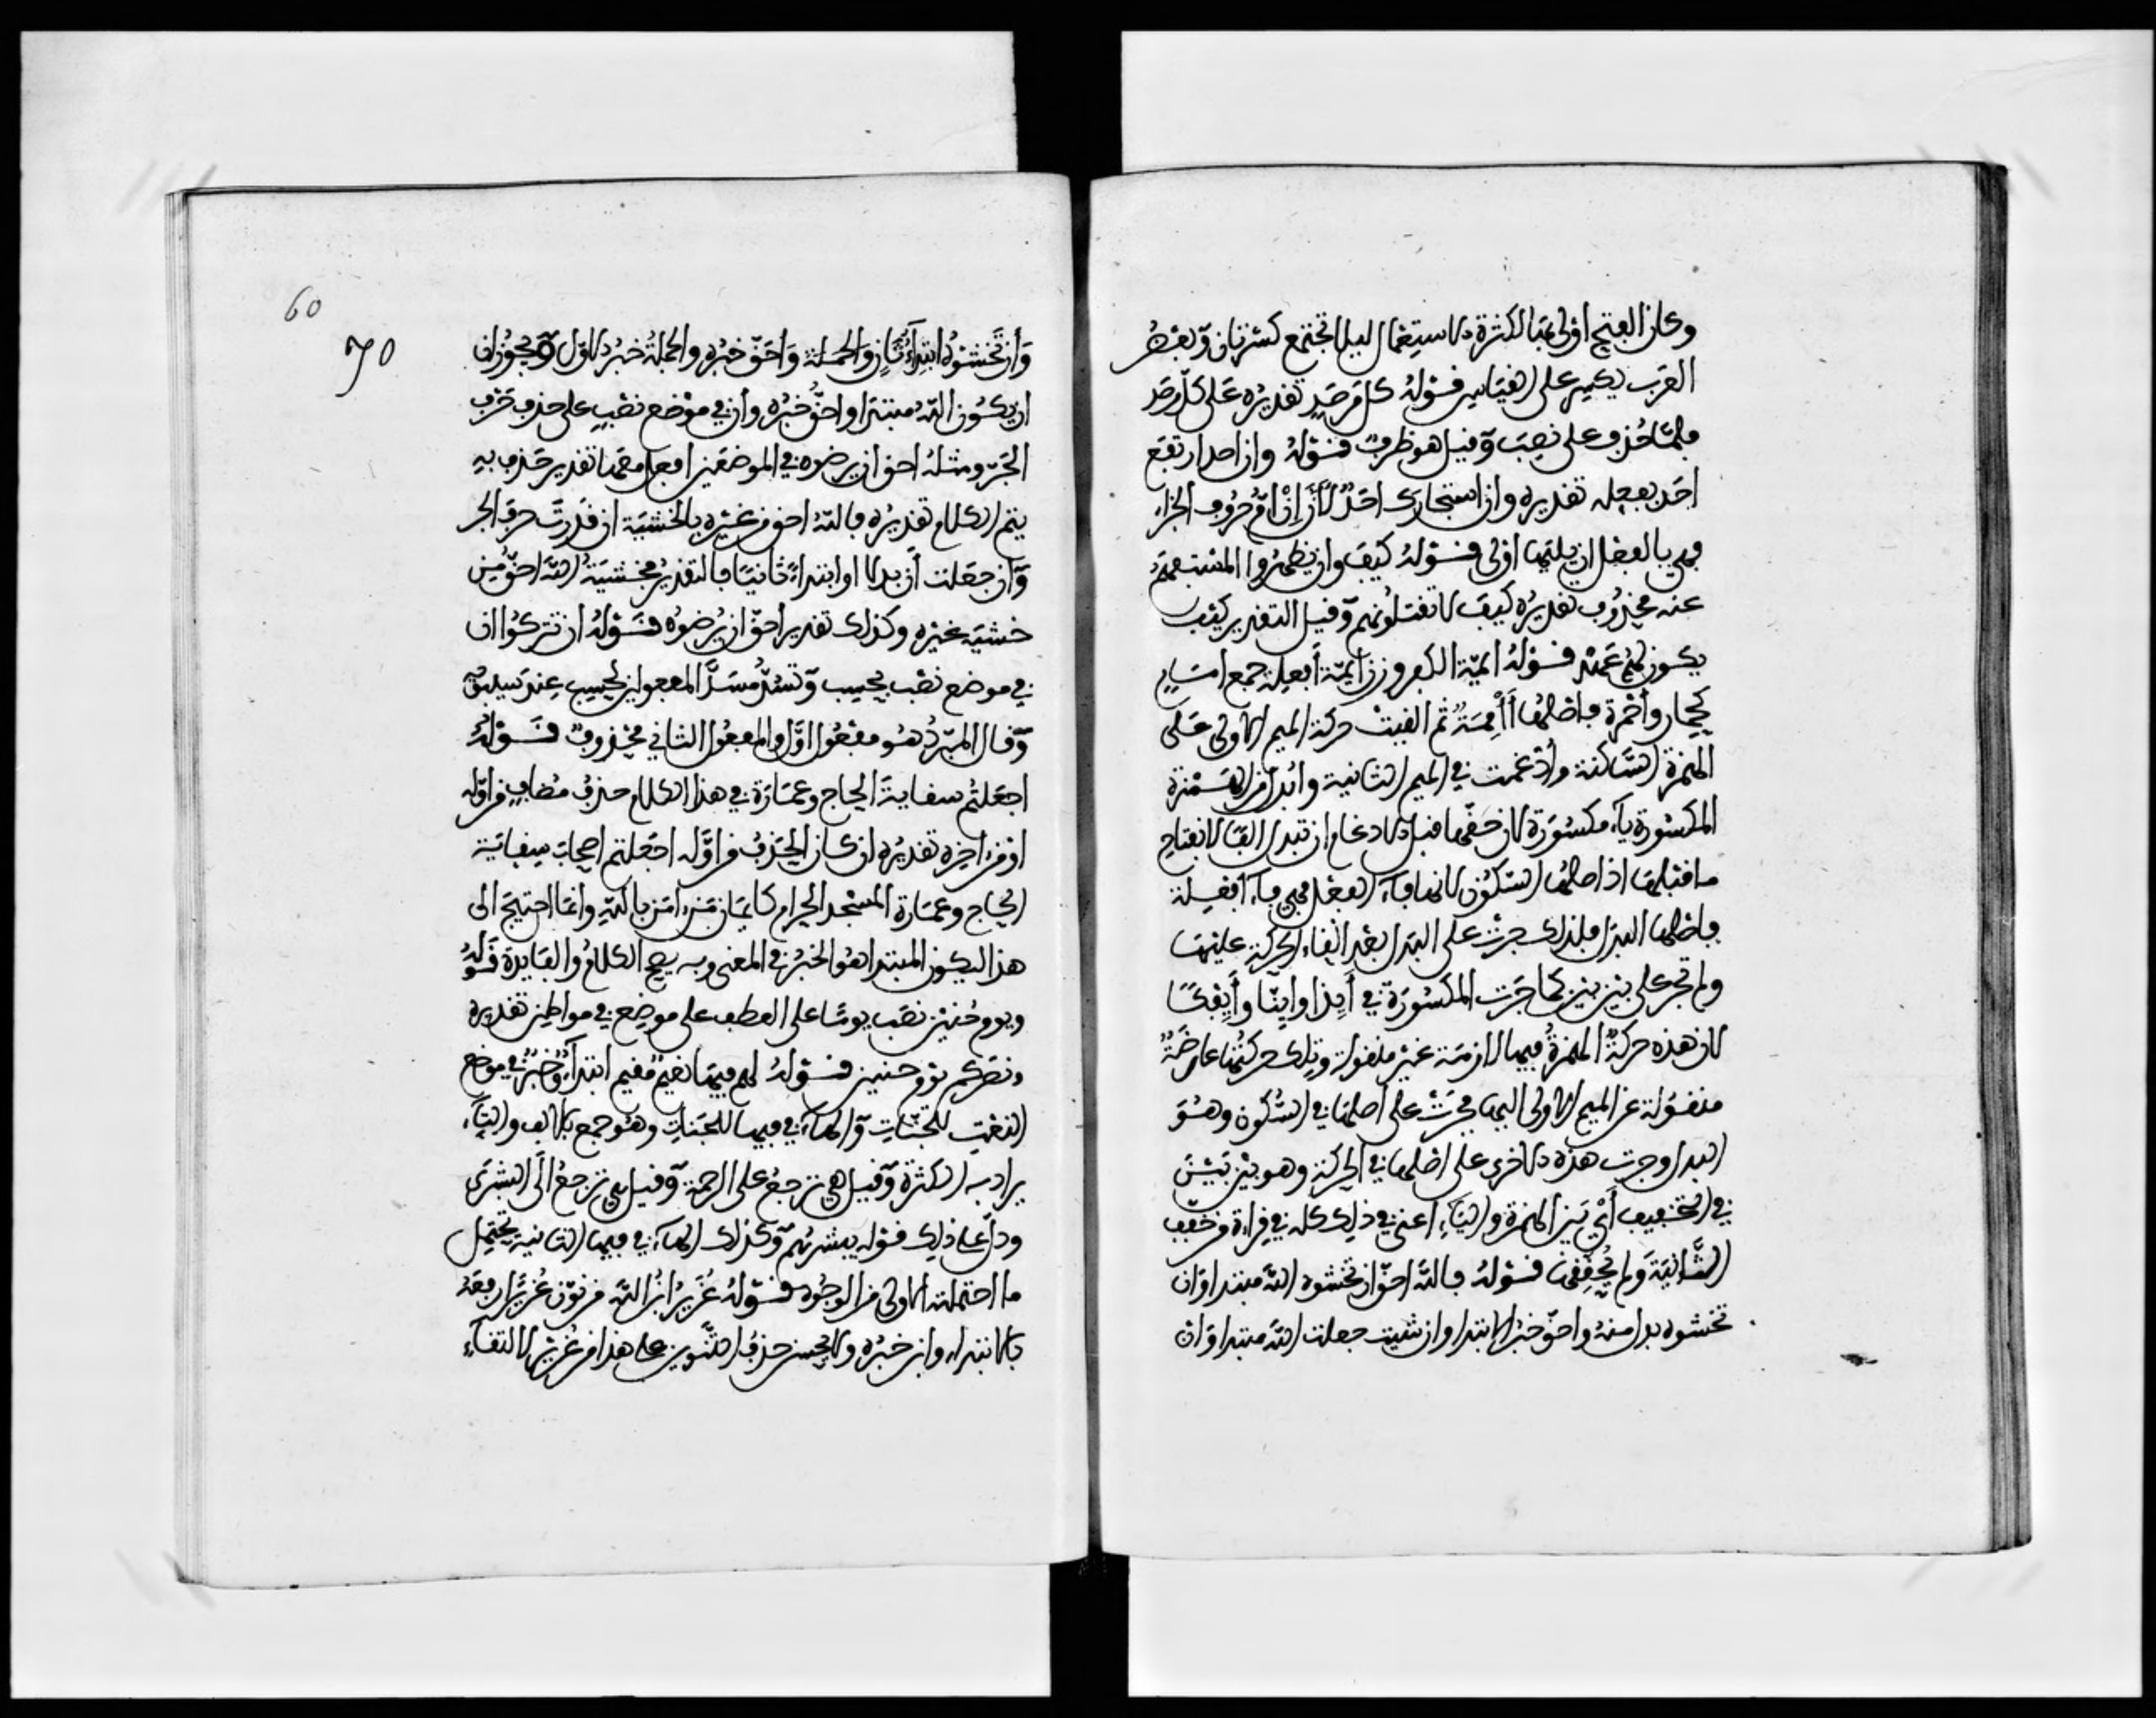 وكان الفتح اولى بها لكثرة الاستعمال ليلا تجتمع كسرتان وبعض
العرب يكسر على القياس قوله كل مرصد تقديره على كل مرصد
فلما حذف على نصب وقيل هو ظرف قوله وان احد ارتفع
احد بفعله تقديره وان استجارك احد لأن إن أم حروف الجزاء
فهي بالفعل ان يليها اولى قوله كيف وان يظهروا المستفهم
عنه محذوف تقديره كيف لا تقتلونهم وقيل التقدير كيف
يكون لهم عهد قوله ايمة الكفر وزن ايمة أفعلة جمع امام
كحمار وأحمرة فاصلها أأممة ثم القيت حركة الميم الاولى على
الهمزة الساكنة وأدغمت في الميم الثانية وابدل من الهمزة
المكسورة ياء مكسورة لان حقها قبل الادغام ان تبدل الفا لانفتاح
ما قبلها اذ اصلها السكون لانها فاء الفعل فهي فاء أفعلة
فاصلها البدل فلذلك جرت على البدل بعد القاء الحركة عليها
ولم تجر على بين بين كما جرت المكسورة في أيذا وأينا وأيفكا
لان هذه حركة الهمزة فيها لازمة غير منقولة وتلك حركتها عارضة
منقولة عن الميم الاولى اليها فجرت على أصلها في السكون وهو
البدل وجرت هذه الاخرى على اصلها في الحركة وهو بين بين
في التخفيف أي بين الهمزة والياء اعني في ذلك كله في قراءة من خفف
الثانية ولم يحققها قوله فالله احق ان تخشوه الله مبتدا وان
تخشوه بدل منه واحق خبر الابتدا وان شيت جعلت الله مبتدا وان
60
70
وأن تخشوه ابتداء ثان والجملة واحق خبره والجملة خبر الاول ويجوز ان
ان يكون الله مبتدا واحق خبره وأن في موضع نصب على حذف حرف
الجر ومثله احق ان يرضوه في الموضعين افعل معهما تقدير حذف به
يتم الكلام تقديره فالله احق من غيره بالخشية ان قدرت حرف الجر
وان جعلت أن بدلا او ابتداء ثانيا فالتقدير فخشية الله احق من
خشية غيره وكذلك تقدير احق ان يرضوه قوله ان تتركوا ان
في موضع نصب بحسب وتسد مسد المفعولين لحسب عند سيبويه
وقال المبرد هو مفعول اول والمفعول الثاني محذوف قوله
اجعلتم سقاية الحاج وعمارة في هذا الكلام حذف مضاف من اوله
او من اخره تقديره ان كان الحذف من اوله اجعلتم اصحاب سقاية
الحاج وعمارة المسجد الحرام كايمان من امن بالله وانما احتيج الى
هذا ليكون المبتدا هو الخبر في المعنى وبه يصح الكلام والفايدة قوله
ويوم حنين نصب يوما على العطف على موضع في مواطن تقديره
ونصركم يوم حنين قوله لهم فيها نعيم مقيم ابتداء وخبر في موضع
النعت للجنات والهاء في فيها للجنات وهو جمع بالالف والتاء
يراد به الكثرة وقيل هي ترجع على الرحمة وقيل بل ترجع الى البشرى
ودل على ذلك قوله يبشرهم وكذلك الهاء في فيها الثانية يحتمل
ما احتملته الاولى من الوجوه قوله عزير ابن الله من نون عزيرا رفعه
بالابتداء وابن خبره ولا يحسن حذف التنوين على هذا من عزير لالتقاء